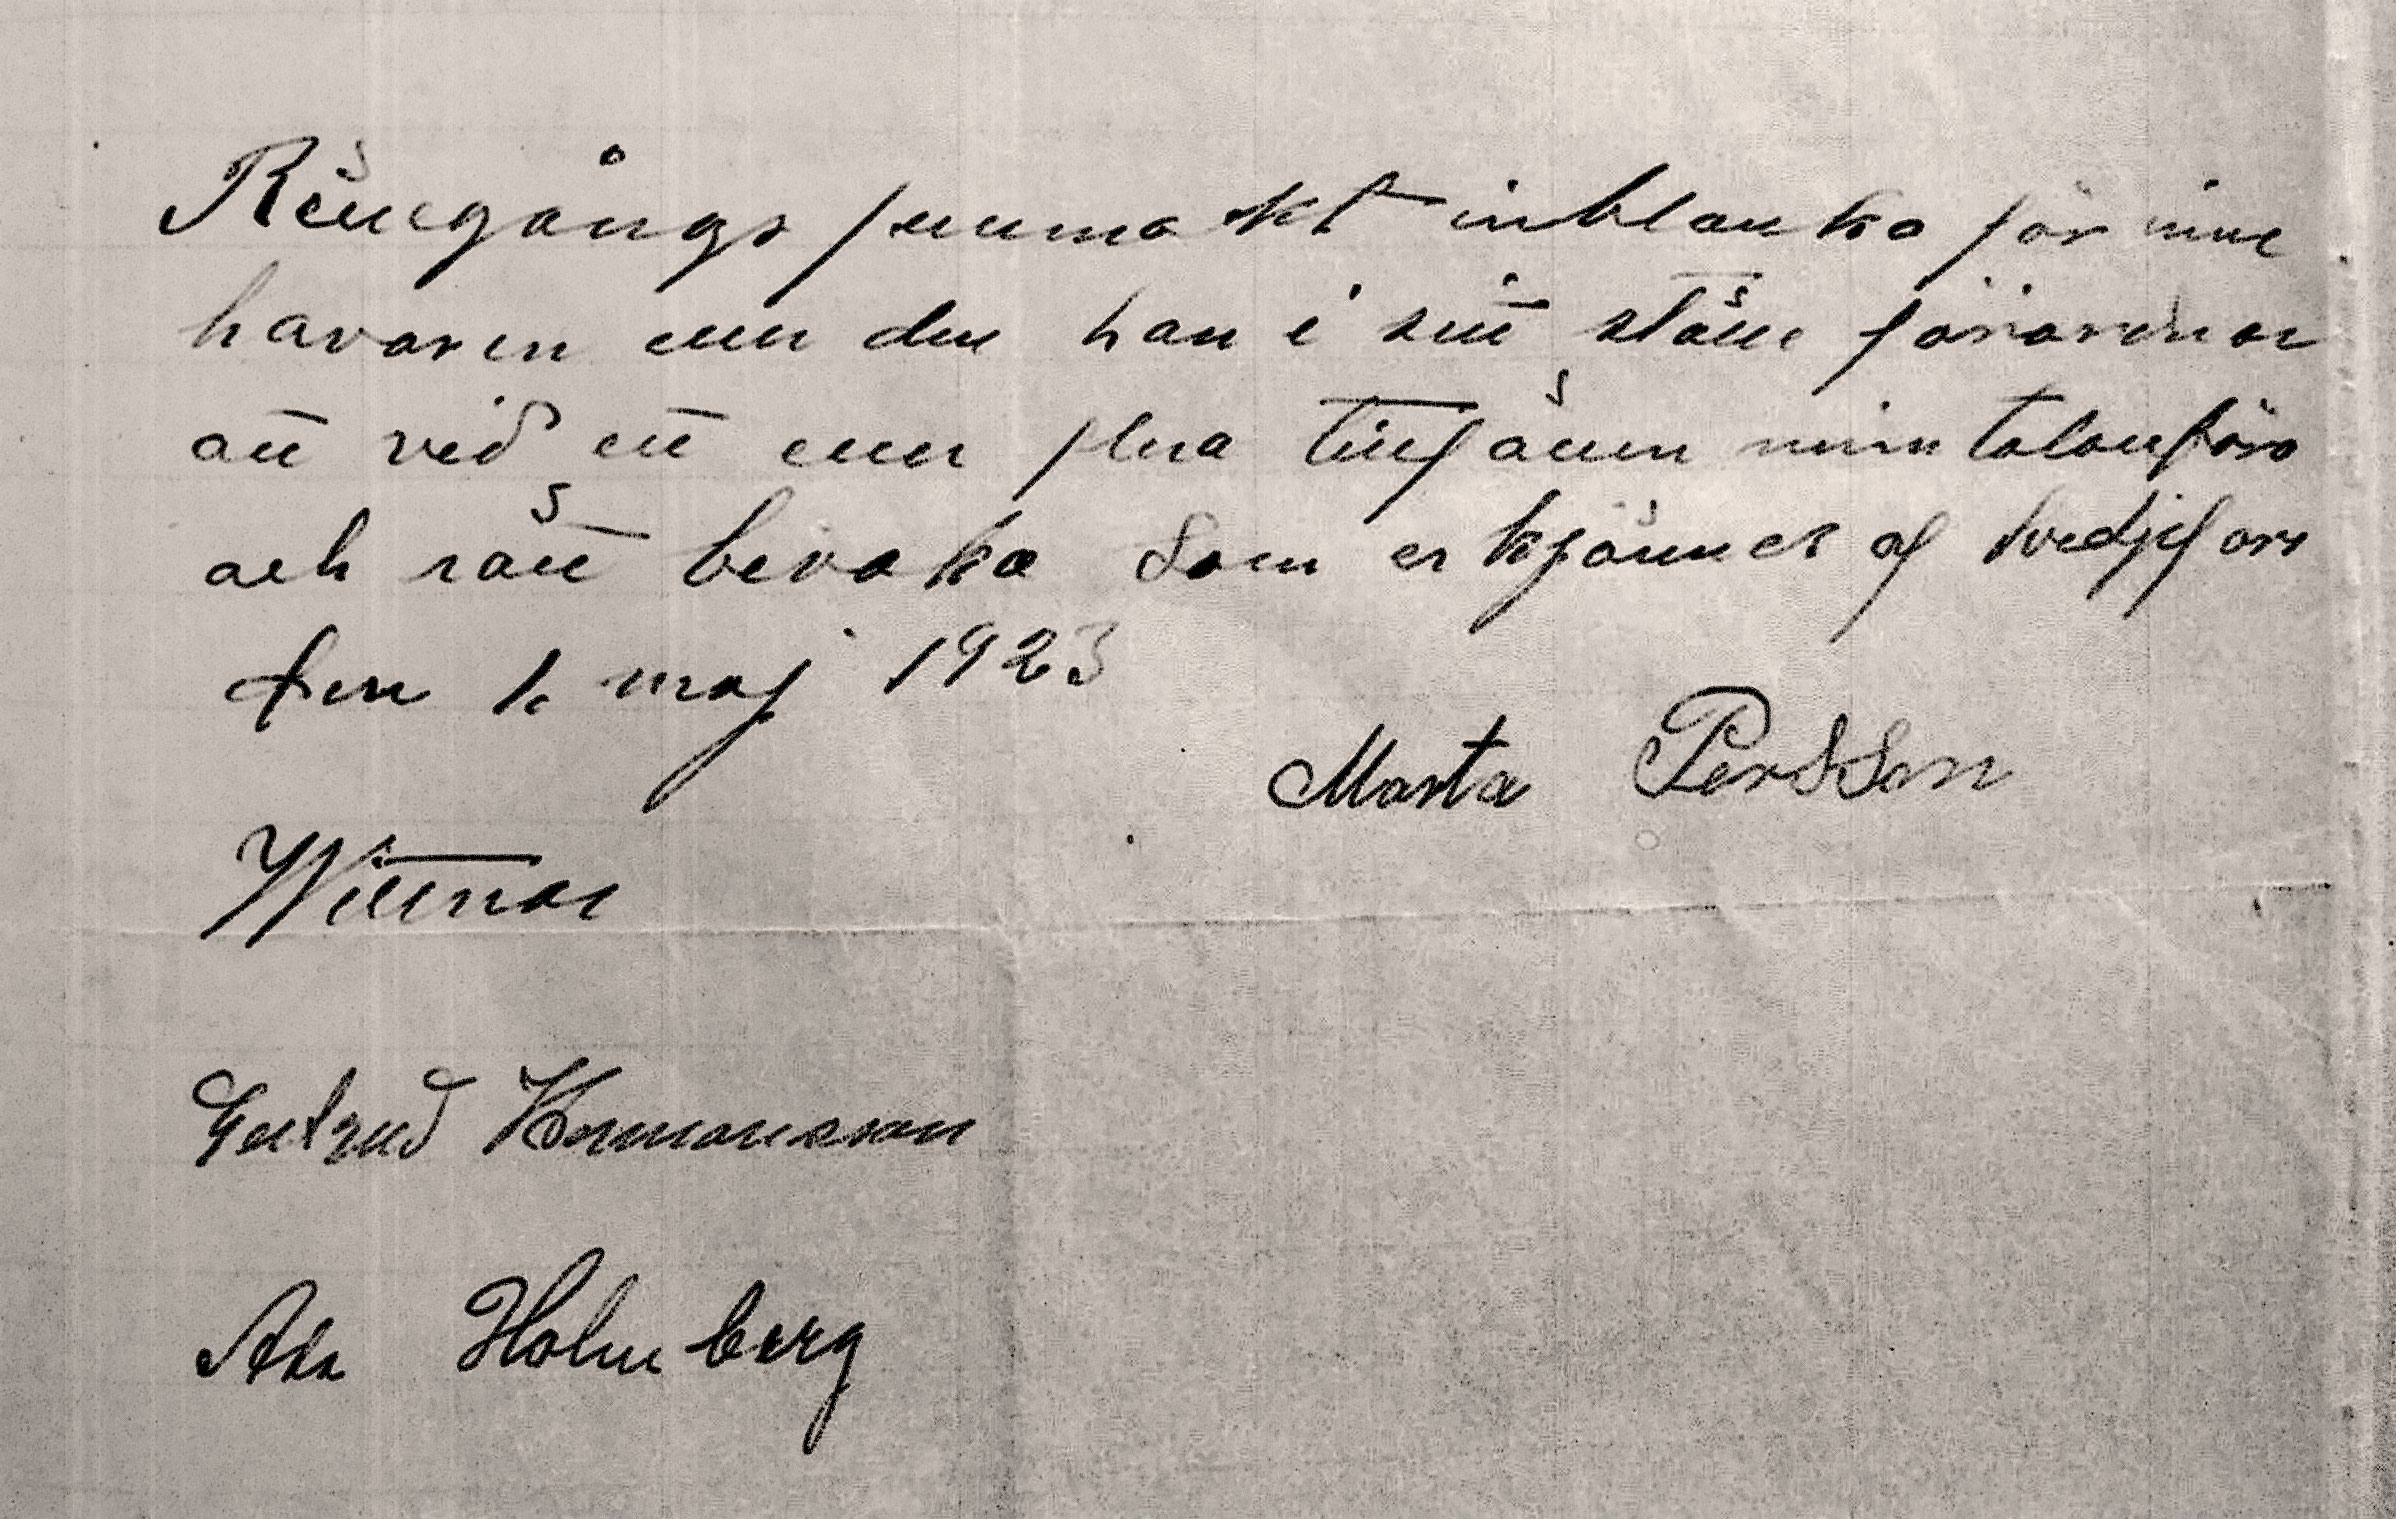 Rättegångs fullmakt inblanko för inne
havaren eller den han i sitt ställe förordnar
att vid ett eller flera tillfällen min talan föra
och rätt bevaka Som erkjännes af Svedje
den 1. maj 1923
Marta Persson
Wittnar
Gertrud Hermansson
Ada Holmberg